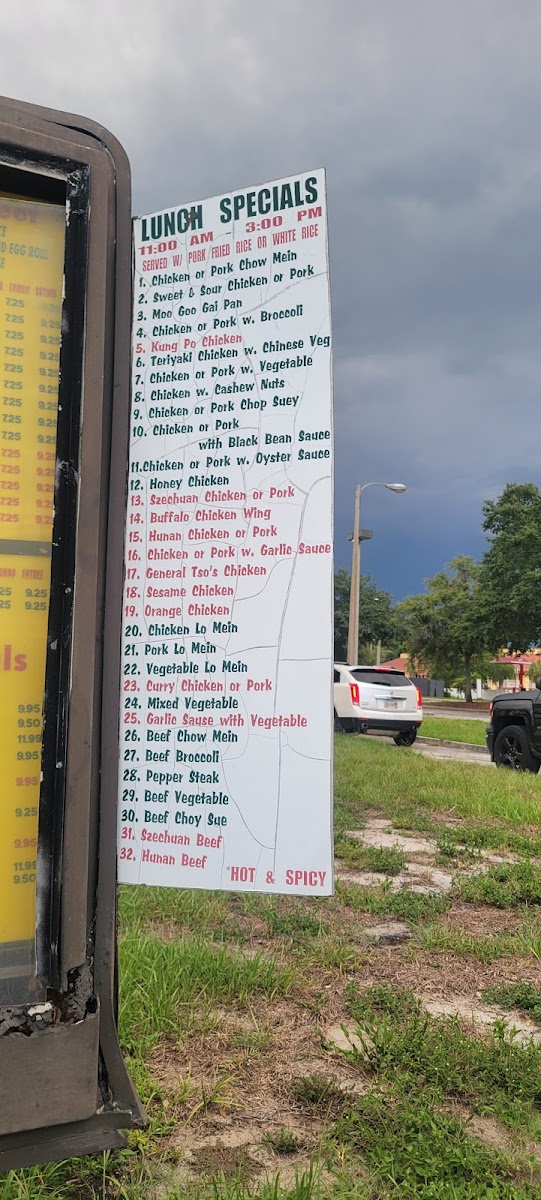 LUNCH SPECIALS
11:00 AM - 3:00 PM
SERVED W/ PORK FRIED RICE OR WHITE RICE
1. Chicken or Pork Chow Mein
2. Sweet & Sour Chicken or Pork
3. Moo Goo Gai Pan
4. Chicken or Pork w. Broccoli
5. Kung Po Chicken
6. Teriyaki Chicken w. Chinese Veg
7. Chicken or Pork w. Vegetable
8. Chicken w. Cashew Nuts
9. Chicken or Pork Chop Suey
10. Chicken or Pork
with Black Bean Sauce
11.Chicken or Pork w. Oyster Sauce
12. Honey Chicken
13. Szechuan Chicken or Pork
14. Buffalo Chicken Wing
15. Hunan Chicken or Pork
16. Chicken or Pork w. Garlic Sauce
17. General Tso's Chicken
18. Sesame Chicken
19. Orange Chicken
20. Chicken Lo Mein
21. Pork Lo Mein
22. Vegetable Lo Mein
23. Curry Chicken or Pork
24. Mixed Vegetable
25. Garlic Sause with Vegetable
26. Beef Chow Mein
27. Beef Broccoli
28. Pepper Steak
29. Beef Vegetable
30. Beef Choy Sue
31. Szechuan Beef
32. Hunan Beef
*HOT & SPICY
EGG ROLL
COMBO ENTREE
7.25
7.25 9.25
7.25 9.25
7.25 9.25
7.25 9.25
7.25 9.25
7.25 9.25
7.25 9.25
7.25 9.25
7.25 9.25
7.25 9.25
7.25
ENTREE
9.25
9.25
9.95
9.50
11.99
9.95
9.95
9.25
9.95
11.99
9.50